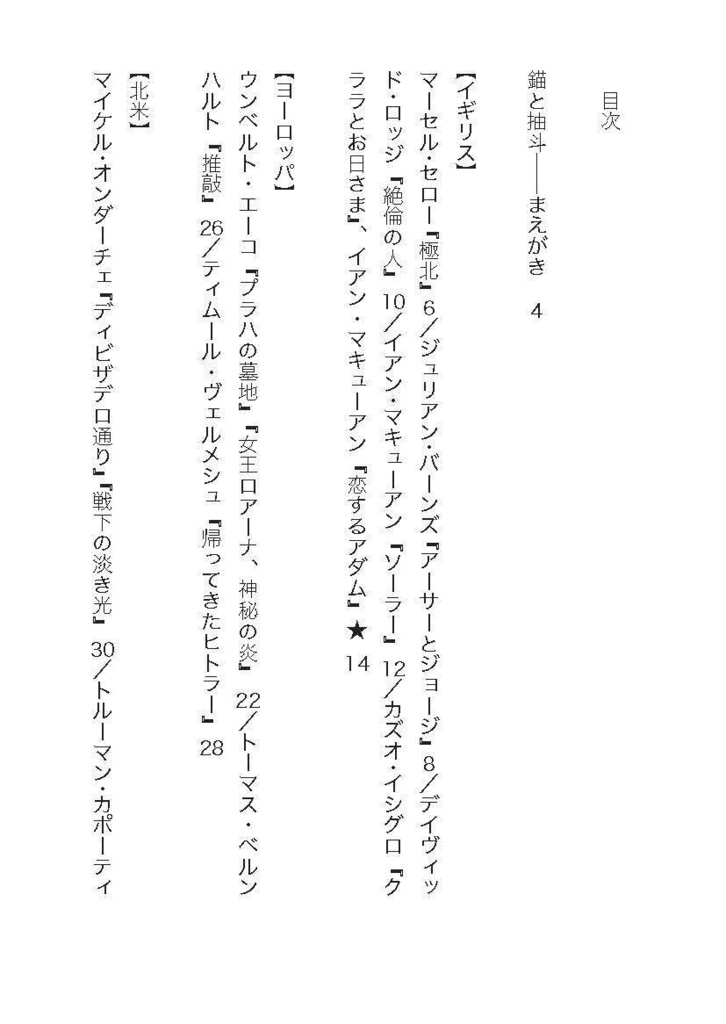 目次
錨と抽斗――まえがき 4
【イギリス】
マーセル・セロー『極北』 6／ジュリアン・バーンズ『アーサーとジョージ』 8／デイヴィッ
ド・ロッジ『絶倫の人』 10／イアン・マキューアン『ソーラー』 12／カズオ・イシグロ『ク
ララとお日さま』、イアン・マキューアン『恋するアダム』★ 14
【ヨーロッパ】
ウンベルト・エーコ『プラハの墓地』『女王ロアーナ、神秘の炎』 22／トーマス・ベルン
ハルト『推敲』 26／ティムール・ヴェルメシュ『帰ってきたヒトラー』 28
【北米】
マイケル・オンダーチェ『ディビザデロ通り』『戦下の淡き光』 30／トルーマン・カポーティ